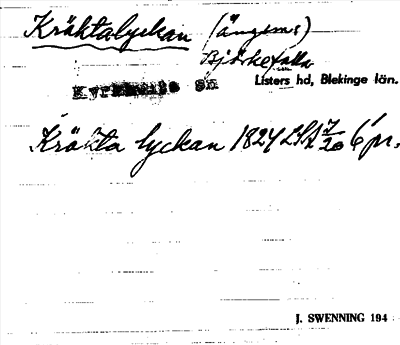 Kråktalyckan (ängsm:)
Björkefalla
Kyrkhults sn Listers hd, Blekinge län.
Kråkta lyckan 1824 LSA 7/20 6 pr.
J. SWENNING 194